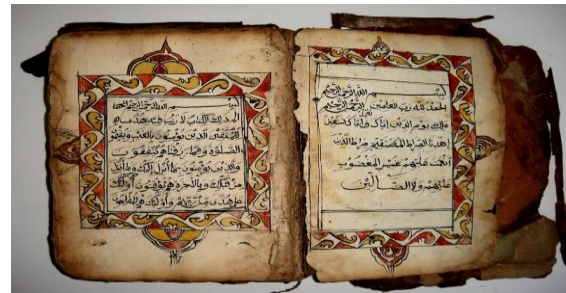 بسم الله الرحمن الرحيم
الحمد لله رب العالمين الرحمن الرحيم
نعبد
ملك يوم الدين إياك وإياك نستعين
اهدنا الصراط المستقيم صراط الذين
أنعمت عليهم غير المغضوب
عليهم ولا الضالين
بسم الله الرحمن الرحيم
الم ذلك الكتاب لا ريب فيه هدى
للمتقين الذين يؤمنون بالغيب ويقيمو
الصلوة ومما رزقنهم ينفقون
والذين يؤمنون بما أنزل إليك وما أنزل
من قبلك وبالآخرة هم يوقنون أولئك
على هدى من ربهم وأولئك هم المفلحون